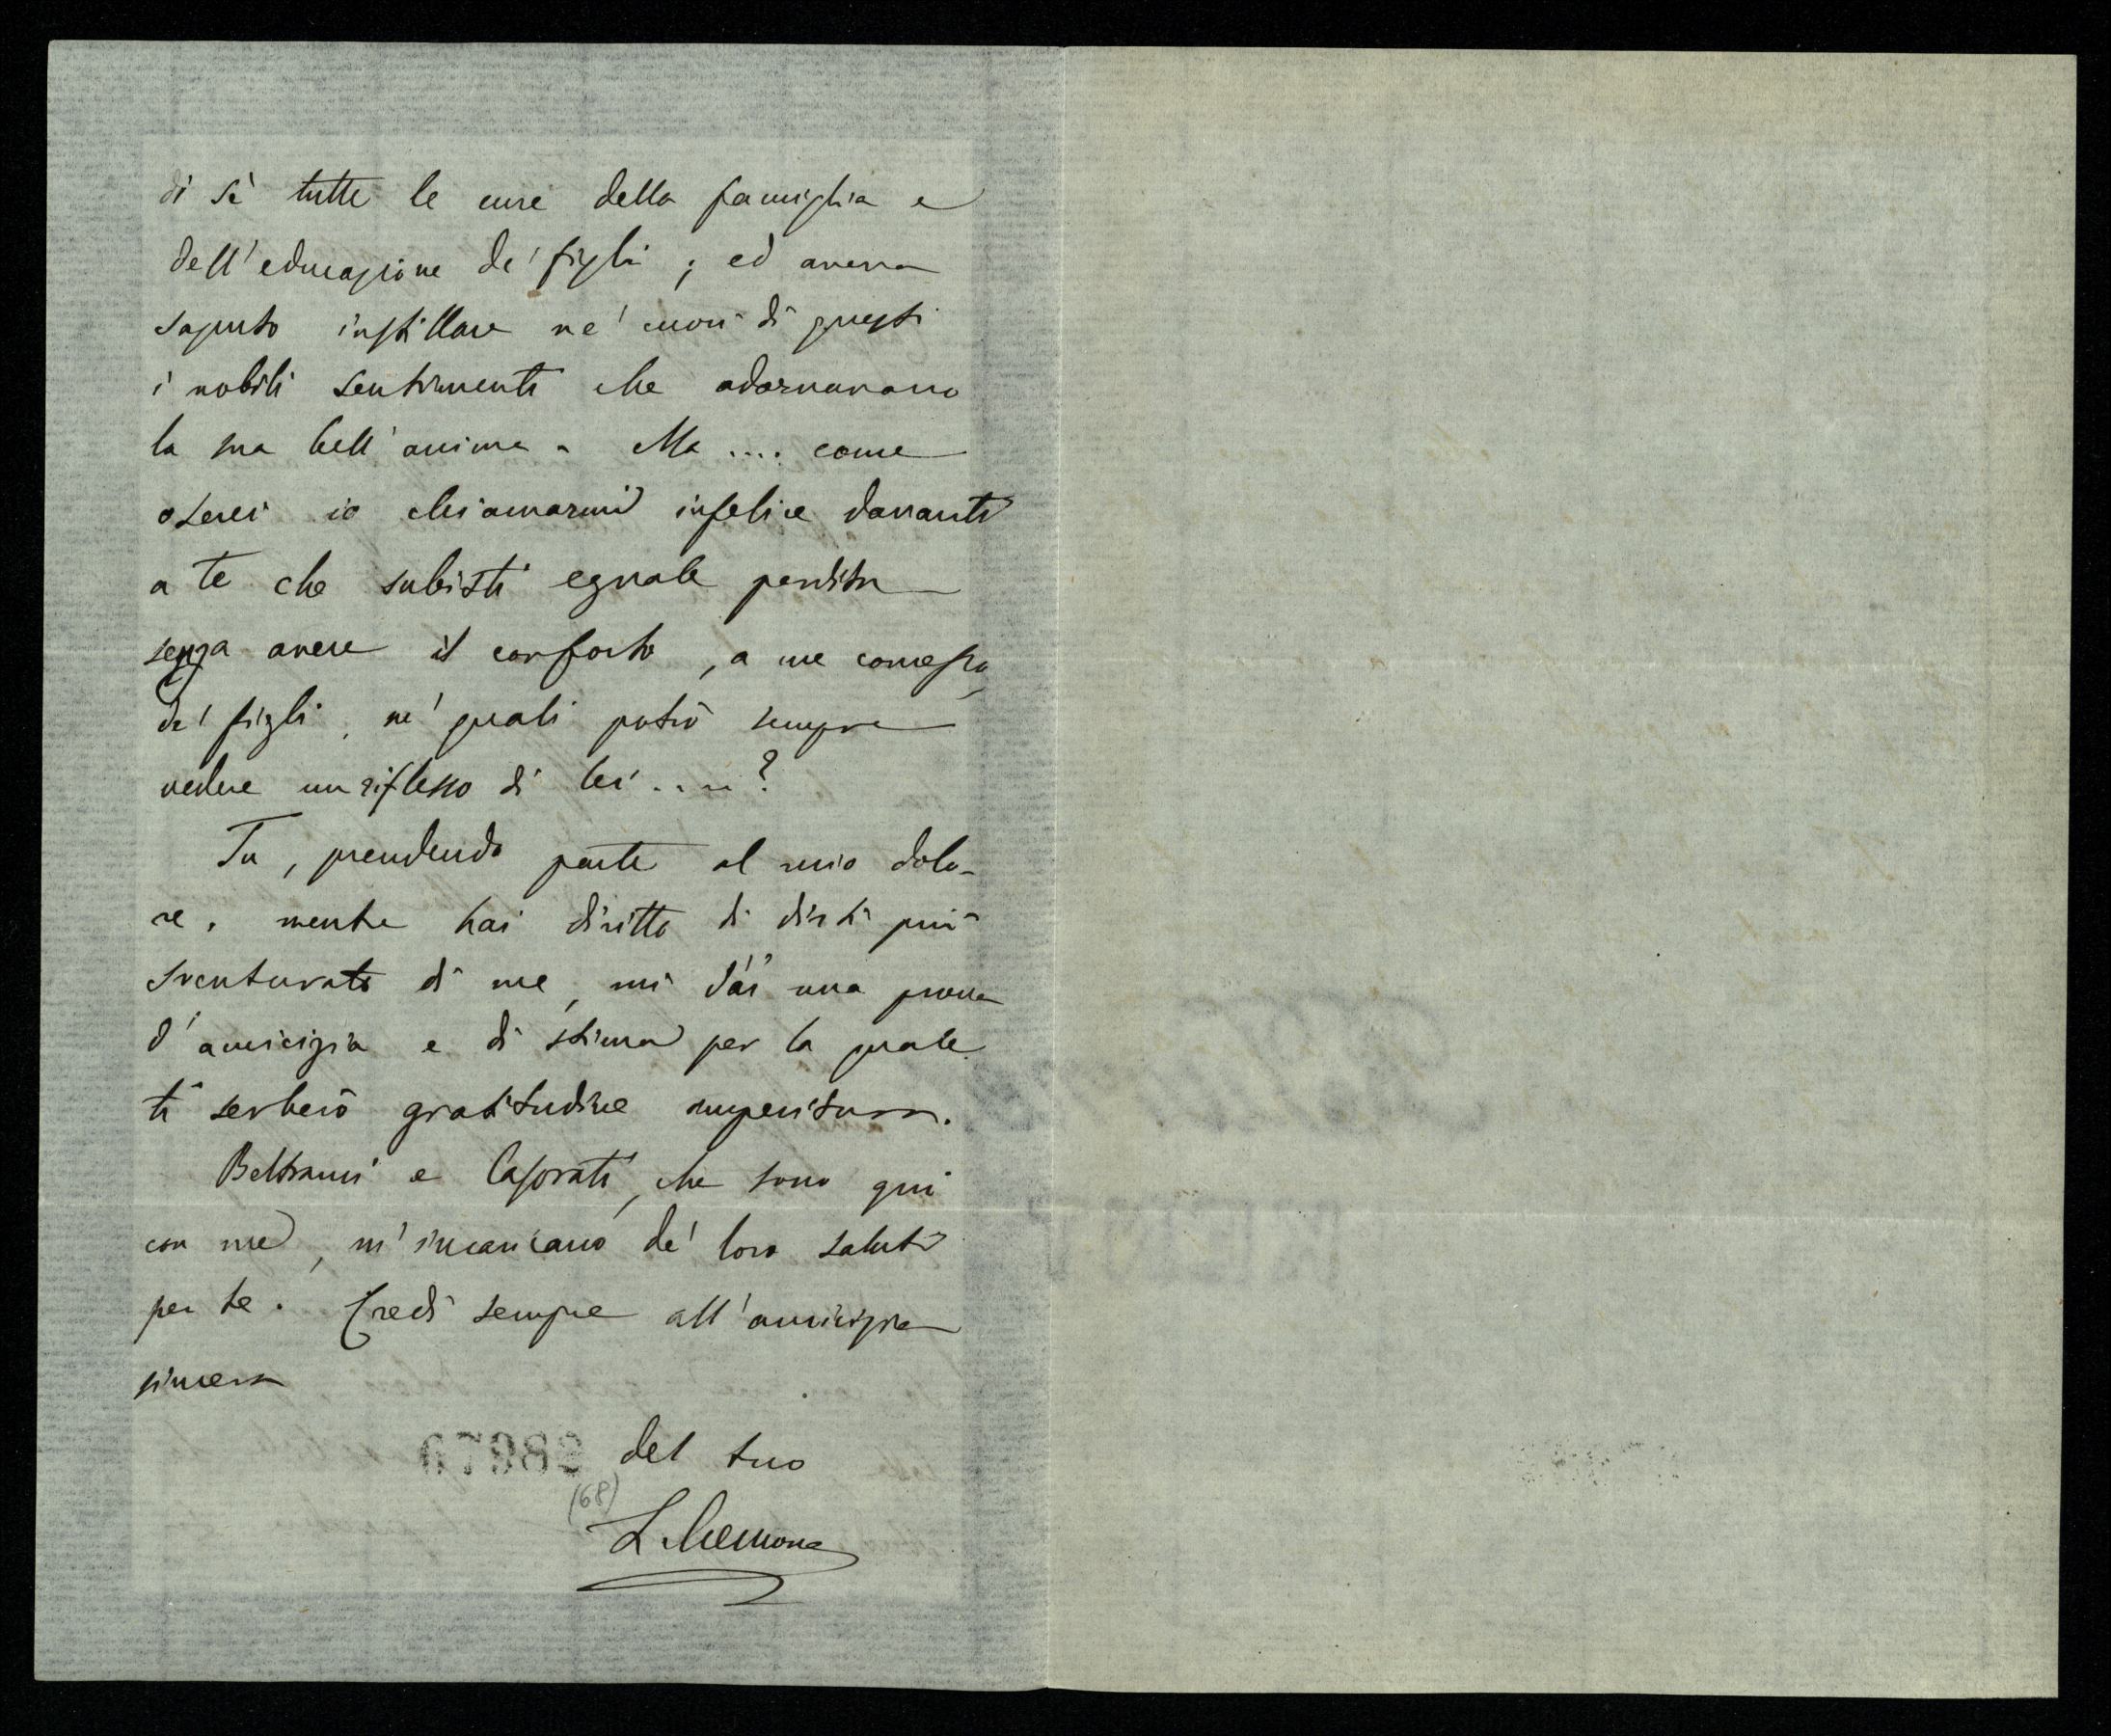 di sè tutte le cure della famiglia e
dell'educazione de' figli; ed aveva
saputo instillare ne' cuori di questi
i nobili sentimenti che adornavano
la sua bell'anima. Ma .... come
oserei io chiamarmi infelice davanti
a te che subisti eguale perdita
senza avere il conforto, a me concesso,
de' figli, ne' quali potrò sempre
vedere un riflesso di lei ....?
Tu, prendendo parte al mio dolo-
re, mentre hai diritto di dirti più
sventurato di me, mi dai una prova
d'amicizia e di stima per la quale
ti serberò gratitudine imperitura.
Beltrami e Casorati, che sono qui
con me, m'incaricano de' loro saluti
per te. Credi sempre all'amicizia
sincera
07982 del tuo
(68)
L. Cremona